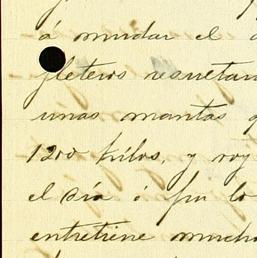 á mudar el
fleteros
unas mantas
1200 kilos, y voy
el día ó fin lo
entretiene mucho